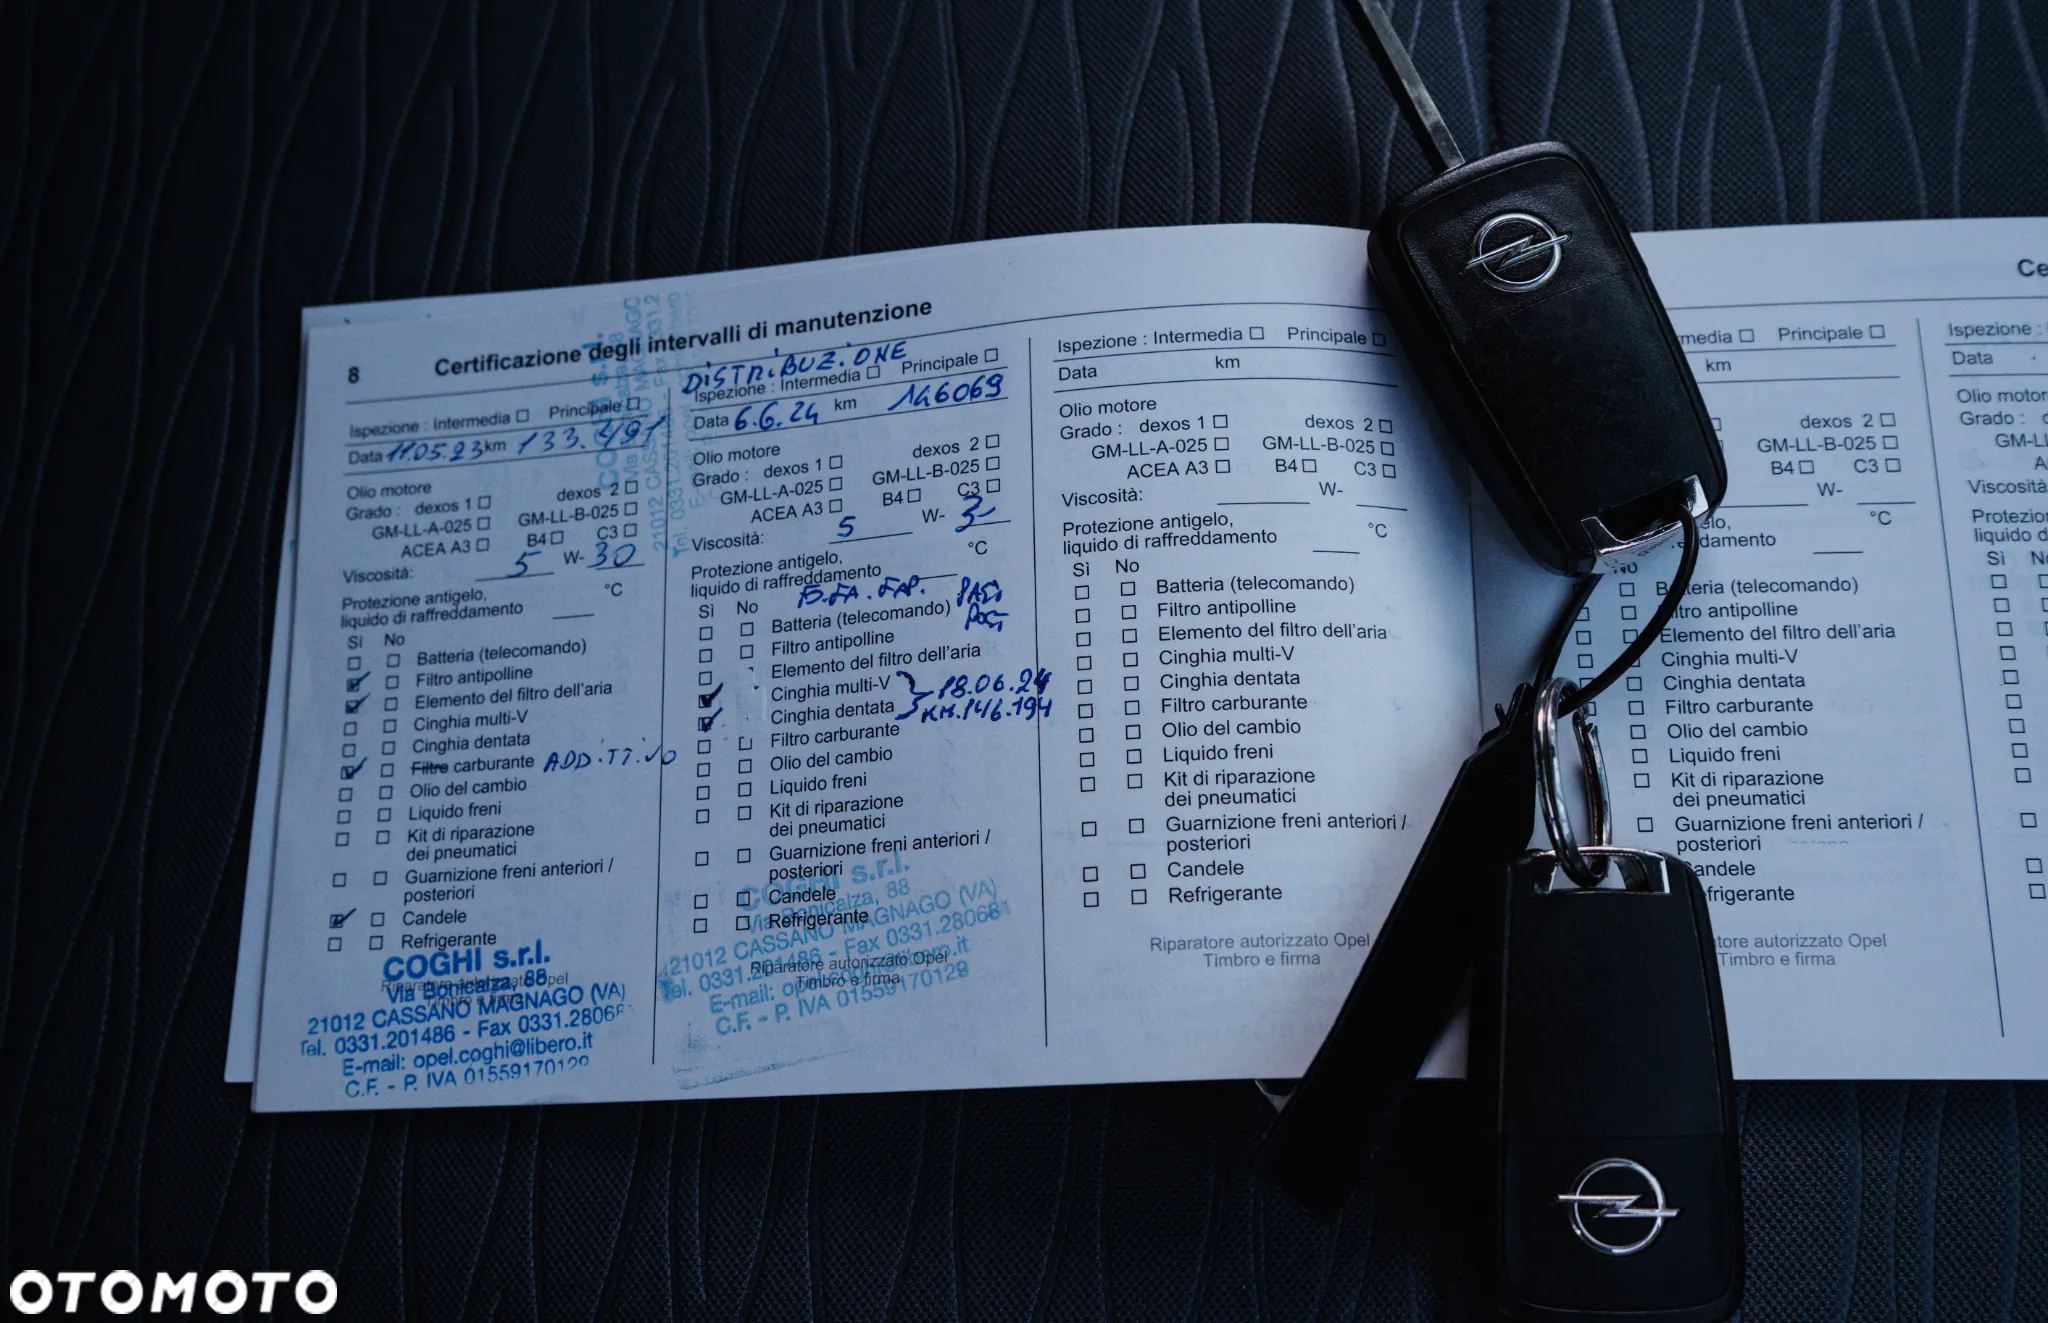 8 Certificazione degli intervalli di manutenzione
Ispezione : Intermedia ☐ Principale ☐
Data 11.05.23 km 133.491
Olio motore
Grado : dexos 1 ☐ dexos 2 ☐
GM-LL-A-025 ☐ GM-LL-B-025 ☐
ACEA A3 ☐ B4 ☐ C3 ☐
Viscosità: 5 W- 30
Protezione antigelo,
liquido di raffreddamento °C
Sì No
Batteria (telecomando)
Filtro antipolline
Elemento del filtro dell'aria
Cinghia multi-V
Cinghia dentata
Filtro carburante ADDITTIVO
Olio del cambio
Liquido freni
Kit di riparazione
dei pneumatici
Guarnizione freni anteriori /
posteriori
Candele
Refrigerante
COGHI s.r.l.
Riparatore autorizzato Opel
Via Bonicalza, 88
21012 CASSANO MAGNAGO (VA)
Tel. 0331.201486 - Fax 0331.28068
E-mail: opel.coghi@libero.it
C.F. - P. IVA 01559170129
DISTRIBUZIONE
Ispezione : Intermedia ☐ Principale ☐
Data 6.6.24 km 146069
Olio motore
Grado : dexos 1 ☐ dexos 2 ☐
GM-LL-A-025 ☐ GM-LL-B-025 ☐
ACEA A3 ☐ B4 ☐ C3 ☐
Viscosità: 5 W-
Protezione antigelo,
liquido di raffreddamento °C
Sì No
Batteria (telecomando)
Filtro antipolline
Elemento del filtro dell'aria
Cinghia multi-V 18.06.24
Cinghia dentata KM.146.194
Filtro carburante
Olio del cambio
Liquido freni
Kit di riparazione
dei pneumatici
Guarnizione freni anteriori /
posteriori
COGHI s.r.l.
Candele
Via Bonicalza, 88
Refrigerante
21012 CASSANO MAGNAGO (VA)
Tel. 0331.201486 - Fax 0331.280681
Riparatore autorizzato Opel
Timbro e firma
E-mail: opel.coghi@libero.it
C.F. - P. IVA 01559170129
Ispezione : Intermedia ☐ Principale ☐
Data km
Olio motore
Grado : dexos 1 ☐ dexos 2 ☐
GM-LL-A-025 ☐ GM-LL-B-025 ☐
ACEA A3 ☐ B4 ☐ C3 ☐
Viscosità: W-
Protezione antigelo,
liquido di raffreddamento °C
Sì No
Batteria (telecomando)
Filtro antipolline
Elemento del filtro dell'aria
Cinghia multi-V
Cinghia dentata
Filtro carburante
Olio del cambio
Liquido freni
Kit di riparazione
dei pneumatici
Guarnizione freni anteriori /
posteriori
Candele
Refrigerante
Riparatore autorizzato Opel
Timbro e firma
Principale ☐
km
dexos 2 ☐
GM-LL-B-025 ☐
B4 ☐ C3 ☐
W-
°C
No
Batteria (telecomando)
Filtro antipolline
Elemento del filtro dell'aria
Cinghia multi-V
Cinghia dentata
Filtro carburante
Olio del cambio
Liquido freni
Kit di riparazione
dei pneumatici
Guarnizione freni anteriori /
posteriori
Candele
Refrigerante
autorizzato Opel
Timbro e firma
Ispezione :
Data
Grado :
Viscosità
Sì
OTOMOTO